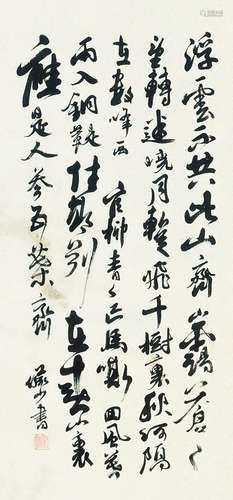 浮雲不共此山齊山靄蒼々
望轉迷曉月暫飛千樹裏秋河隔
在數峰西官柳青々匹馬嘶回風暮
雨入銅鞮佳期別在春山裏
應是人參五葉齊 書